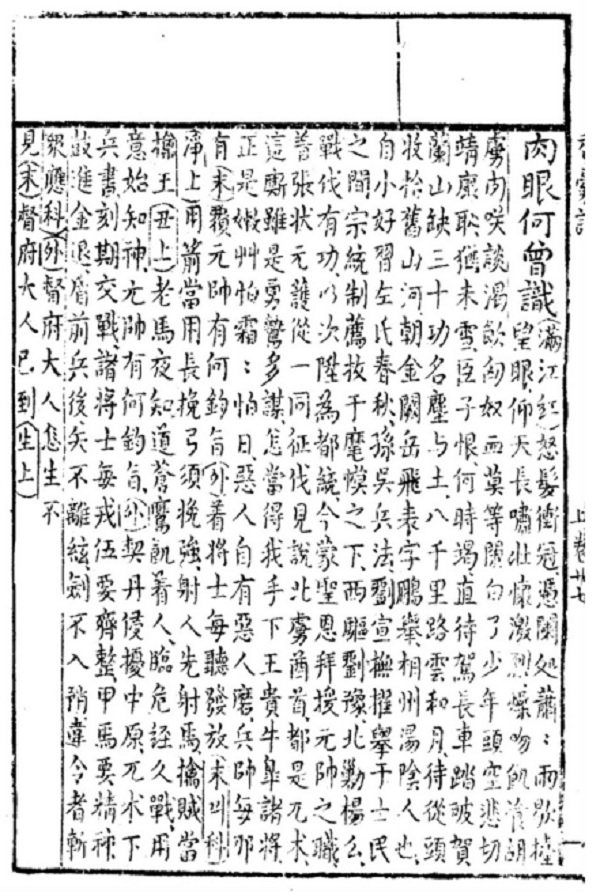 肉眼何曾識(滿江紅)怒髮衝冠憑闌处蕭〻雨歇擡
望眼仰天長嘯壯懷激烈燥吻飢飡胡
虜肉咲談渴飲匈奴血莫等閑白了少年頭空悲切
靖康耻猶未雪臣子恨何時竭直待駕長車踏破賀
蘭山缺三十功名塵与土八千里路雲和月待從頭
收拾舊山河朝金闕岳飛表字鵬舉相州湯陰人也
自小好習左氏春秋孫吳兵法劉宣撫擢舉于士民
之間宗統制薦拔于麾幙之下西驅劉豫北勦楊么
戰伐有功以次陞為都統今蒙聖恩拜授元帥之職
着張状元護從一同征伐見說北虜酋首都是兀术
這厮雖是勇鷙多謀怎當得我手下王貴牛臯諸將
正是嫩艸怕霜〻怕日惡人自有惡人磨兵帥每那
有(末)覆元帥有何鈞旨(外)着將士每聽發放(末叫科)
(淨上)用箭當用長挽弓須挽強射人先射馬擒賊當
擒王(丑上)老馬夜知道蒼鷹飢着人臨危経久戰用
意始知神元帥有何鈞旨(外)契丹侵擾中原兀术下
兵書刻期交戰諸將士每戎伍要齊整甲馬要精神
鼓進金退前兵後矢不離絃劍不入鞘違令者斬
眾應科(外)督府大人怎生不
見(末)督府大人已到(生上)